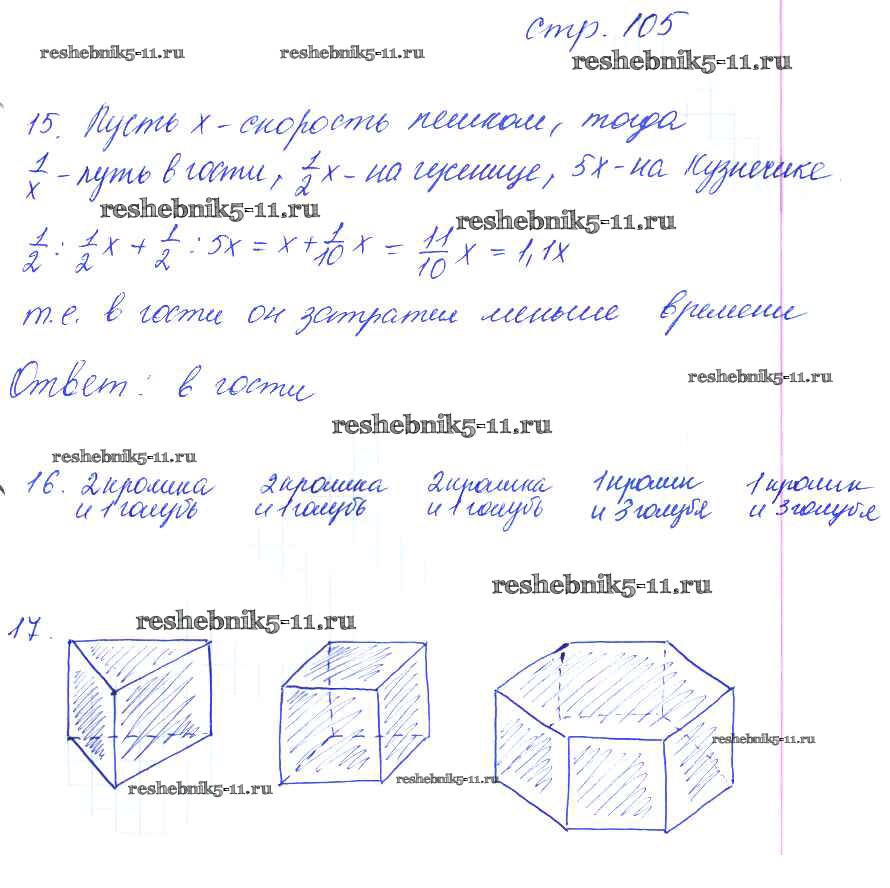 стр. 105
reshebnik5-11.ru reshebnik5-11.ru reshebnik5-11.ru
15. Пусть х – скорость пешком, тогда
1/х – путь в гости, 1/2 х – на гусенице, 5х – на Кузнечике.
reshebnik5-11.ru reshebnik5-11.ru
1/2 : 1/2 х + 1/2 : 5х = х + 1/10 х = 11/10 х = 1,1х
т.е. в гости он затратил меньше времени
reshebnik5-11.ru
Ответ: в гости
reshebnik5-11.ru
reshebnik5-11.ru
16. 2 кролика 2 кролика 2 кролика 1 кролик 1 кролик
и 1 голубь и 1 голубь и 1 голубь и 3 голубя и 3 голубя
reshebnik5-11.ru
17. reshebnik5-11.ru
reshebnik5-11.ru
reshebnik5-11.ru reshebnik5-11.ru